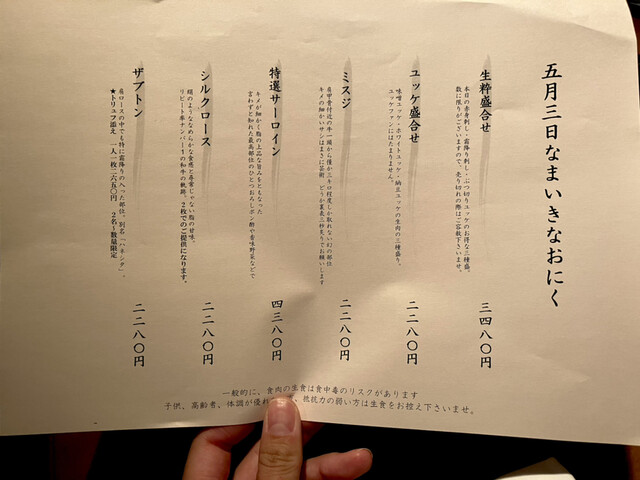 五月三日なまいきなおにく
生粋盛合せ
本日の赤身刺し・霜降り刺し・ぶつ切りユッケのお得な三種盛。
数に限りがございますので、売り切れの際はご容赦下さいませ。
三四八〇円
ユッケ盛合せ
味噌ユッケ・ホワイトユッケ・納豆ユッケの生肉の三種盛り。
ユッケファンにはたまりません。
二二八〇円
ミスジ
肩甲骨付近の牛一頭から僅か三キロ程度しか取れない幻の部位
キメの細かいサシはまさに芸術 どうか裏表三秒炙りでお願いします
二二八〇円
特選サーロイン
キメが細かく脂の上品な旨みをともなった
言わずと知れた最高部位のひとつおろしポン酢や香味野菜などで
四三八〇円
シルクロース
絹のようななめらかな食感と尋常じゃない脂の甘味。
リピート率ナンバー1の和牛の軌跡。2枚でのご提供になります。
二二八〇円
ザブトン
肩ロースの中でも特に霜降りの入った部位。別名「ハネシタ」。
★トリュフ添え 一人一枚二六五〇円 2名~数量限定
二二八〇円
一般的に、食肉の生食は食中毒のリスクがあります
子供、高齢者、体調が優れ 抵抗力の弱い方は生食をお控え下さいませ。